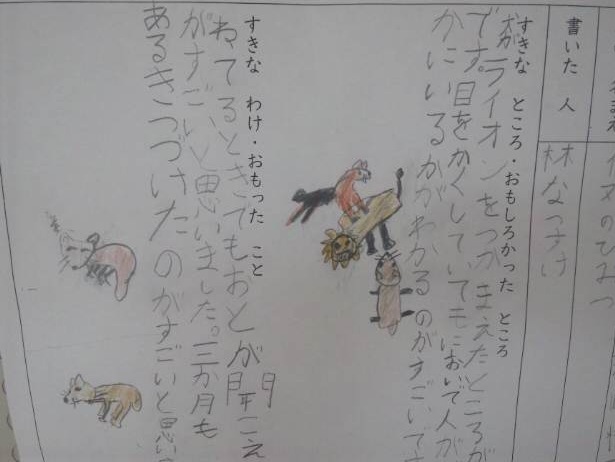 書いた人
林なつさけ
すきな ところ・おもしろかった ところ
がライオンをつかまえたところが
です。目をかくしていてもにおいで人が
かにいるかがわかるのがすごいです
すきな わけ・おもった こと
ねてるときでもおとが聞こえ
がすごいと思いました。三か月も
あるきつづけたのがすごいと思い